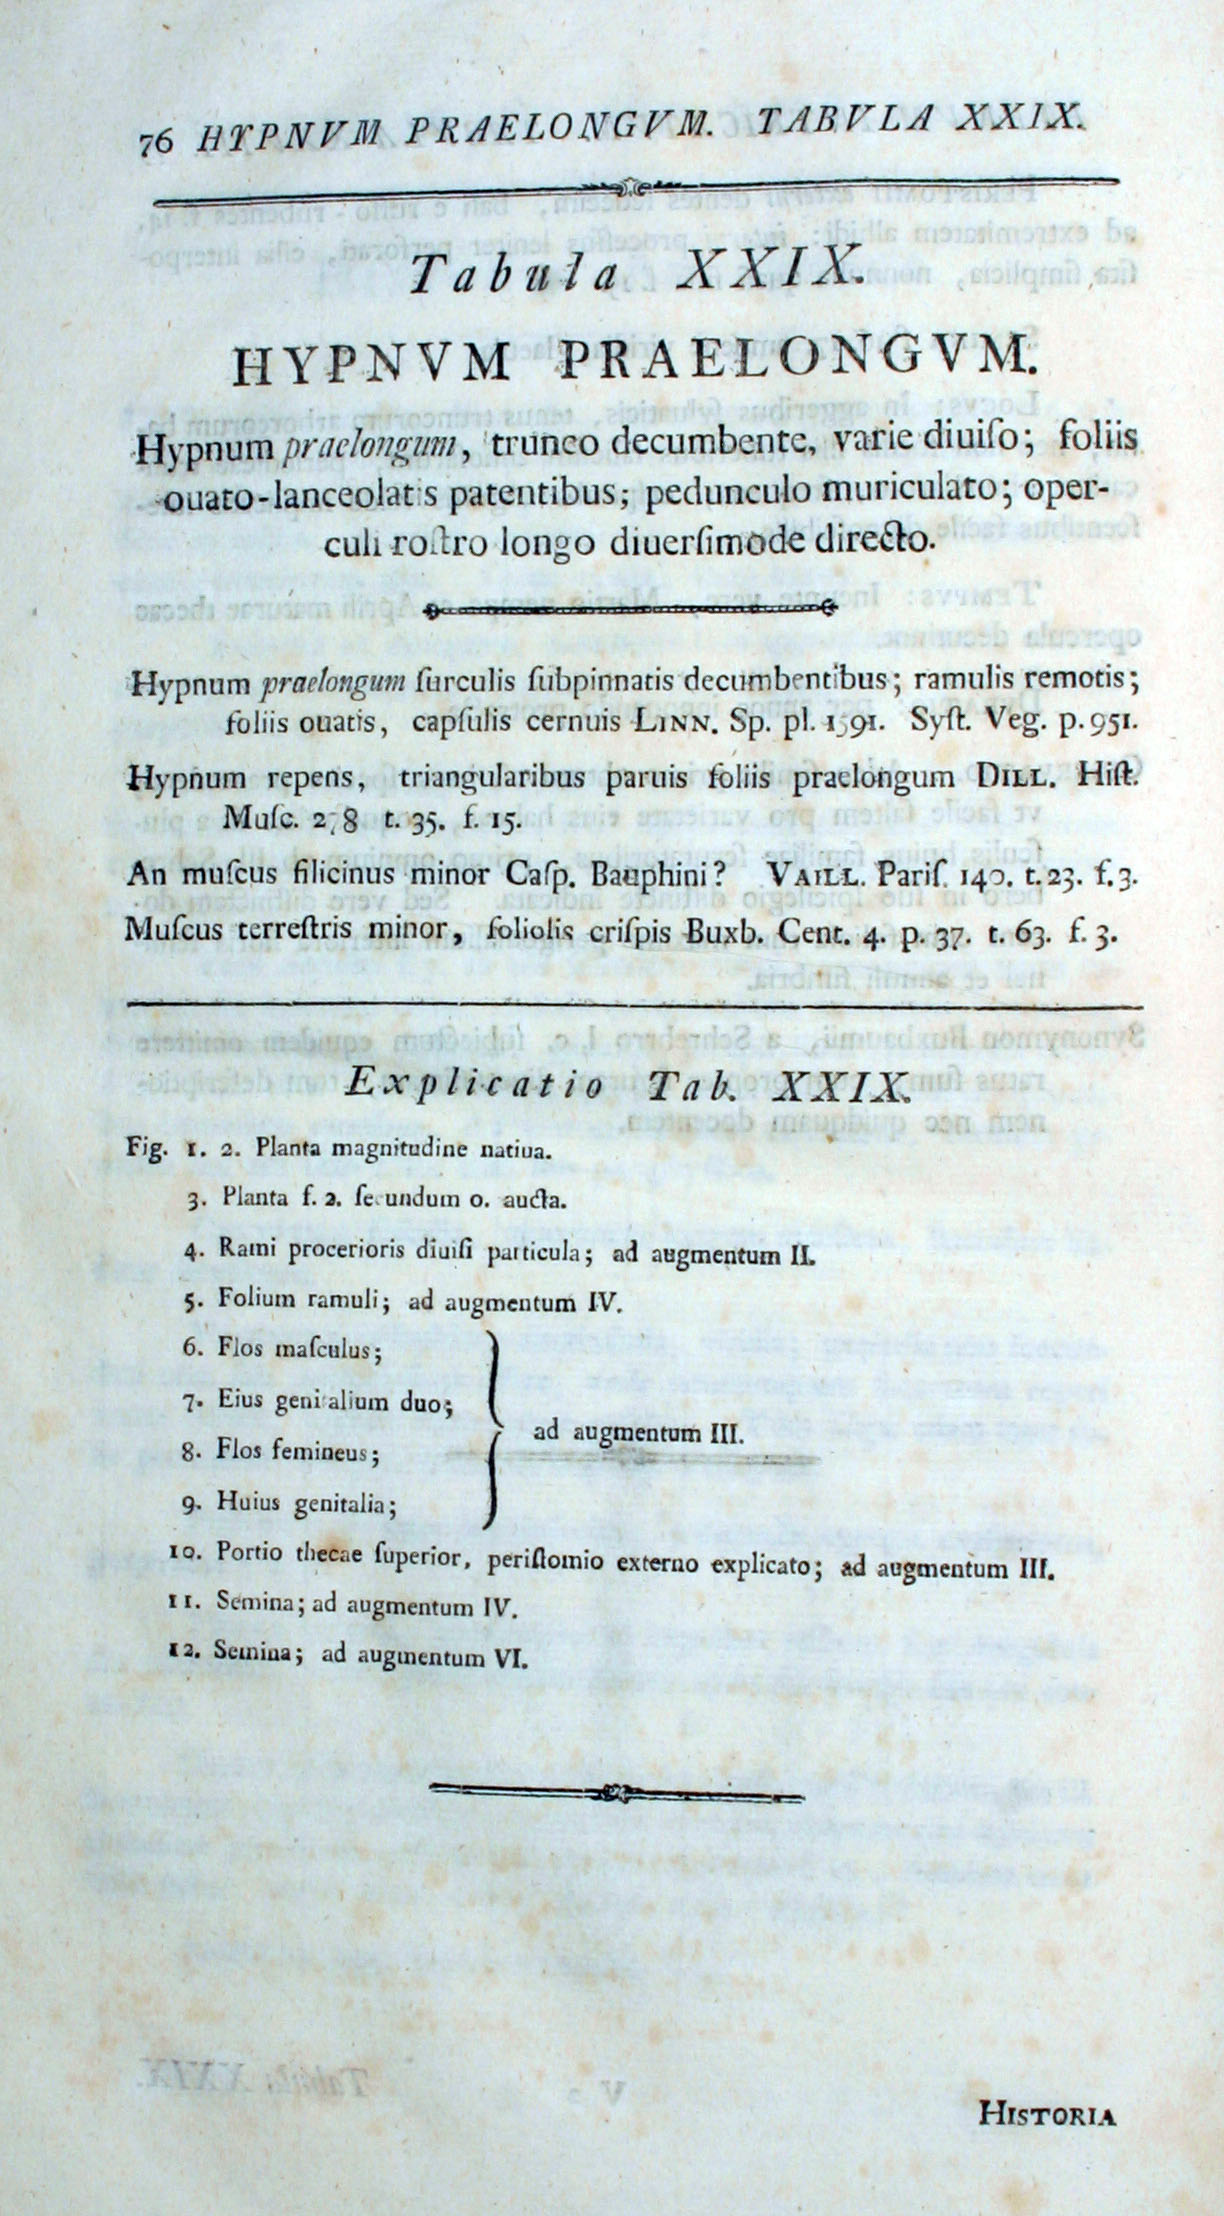 76 HYPNVM PRAELONGVM. TABVLA XXIX.
Tabula XXIX.
HYPNVM PRAELONGVM.
Hypnum praelongum, trunco decumbente, varie diuiſo; foliis
ouato-lanceolatis patentibus; pedunculo muriculato; oper-
culi roſtro longo diuerſimode directo.
Hypnum praelongum ſurculis ſubpinnatis decumbentibus; ramulis remotis;
foliis ouatis, capſulis cernuis LINN. Sp. pl. 1591. Syſt. Veg. p. 951.
Hypnum repens, triangularibus paruis foliis praelongum DILL. Hiſt.
Muſc. 278 t. 35. f. 15.
An muſcus filicinus minor Caſp. Bauphini? VAILL. Pariſ. 140. t. 23. f. 3.
Muſcus terreſtris minor, foliolis criſpis Buxb. Cent. 4. p. 37. t. 63. f. 3.
Explicatio Tab. XXIX.
Fig. 1. 2. Planta magnitudine natiua.
3. Planta f. 2. ſecundum o. aucta.
4. Rami procerioris diuiſi particula; ad augmentum II.
5. Folium ramuli; ad augmentum IV.
6. Flos maſculus;
7. Eius genitalium duo;
ad augmentum III.
8. Flos femineus;
9. Huius genitalia;
10. Portio thecae ſuperior, periſtomio externo explicato; ad augmentum III.
11. Semina; ad augmentum IV.
12. Semina; ad augmentum VI.
HISTORIA